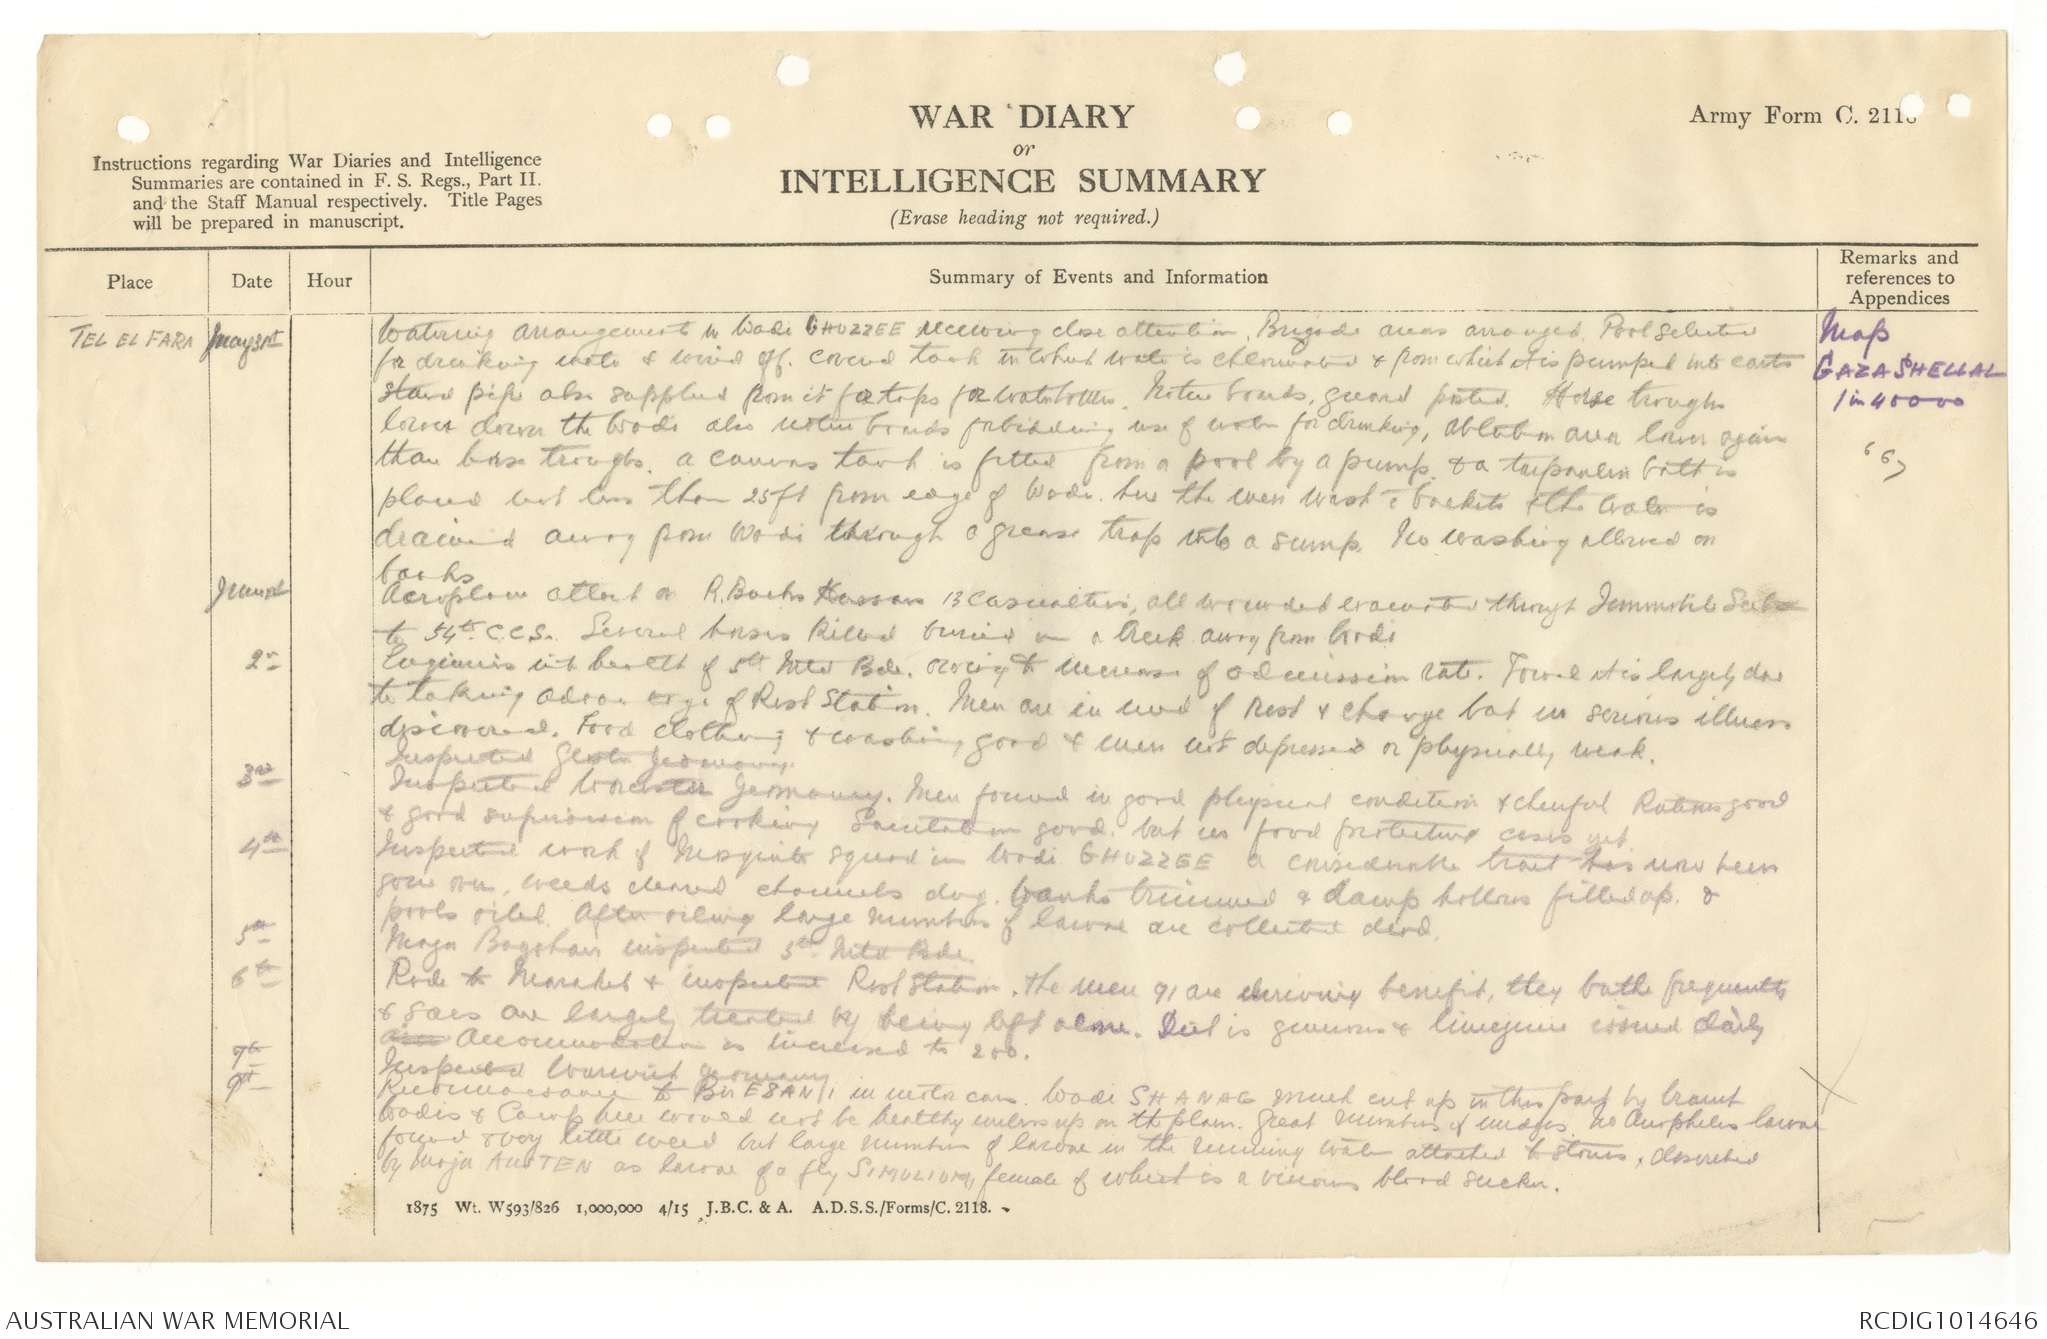 WAR DIARY
or
INTELLIGENCE SUMMARY
(Erase heading not required.)
Army Form C. 2118
Instructions regarding War Diaries and Intelligence
Summaries are contained in F. S. Regs., Part II.
and the Staff Manual respectively. Title Pages
will be prepared in manuscript.
Place
Date
Hour
Summary of Events and Information
Remarks and
references to
Appendices
TEL EL FARA May 31st Watering arrangements in Wadi GHUZZEE receiving close attention. Brigade areas arranged. Pool selected
for drinking water & wired off. covered tank in which water is chlorinated & from which it is pumped into carts
stand pipe also supplied from it for taps for waterbottles. Notice boards, guard posted. Horse troughs
lower down the Wadi also notice boards forbidding use of water for drinking, ablution area lower again
than horse troughs. a canvas tank is filled from a pool by a pump & a tarpaulin bath is
placed not less than 25 ft from edge of Wadi. here the men wash c buckets & the water is
drained away from Wadi through a grease trap into a sump. No washing allowed on
banks
Map
GAZA SHELLAL
1 in 40000
June 1st Aeroplane attack on R. Bucks Hussars 13 casualties, all wounded evacuated through Immobile Sect
to 54th C.C.S. Several horses killed buried in a creek away from Wadi
2nd Enquiries into health of 5th Mtd Bde. owing to increase of admission rate. Found it is largely due
to taking advantage of Rest Station. Men are in need of rest & change but no serious illness
discovered. Food clothing & washing good & men not depressed or physically weak.
Inspected Glosts Yeomanry.
3rd Inspected Worcester Yeomanry. Men found in good physical condition & cheerful Rations good
& good supervision of cooking Sanitation good. but no food protecting cases yet.
4th Inspected work of Mosquito squad in Wadi GHUZZEE a considerable tract has now been
gone over, weeds cleared channels dug. banks trimmed & damp hollows filled up. &
pools oiled. After oiling large numbers of larvae are collected dead.
5th Major Bagshaw inspected 5th Mtd Bde.
6th Rode to Marakeb & inspected Rest Station. The men 91 are deriving benefit, they bathe frequently
& sores are largely treated by being left alone. Diet is generous & limejuice issued daily
Accommodation is increased to 200.
7th Inspected Warwick Yeomanry
9th Reconnaissance to Bir ESANI in motor cars. Wadi SHANAG much cut up in this part by branch
Wadis & Camp here would not be healthy unless up on the plain. Great numbers of midges. no Anopheles larvae
found & very little weed but large numbers of larvae in the running water attached to stones, described
by Major AUSTEN as larvae of a fly SIMULIUM, female of which is a vicious blood sucker.
1875 Wt. W593/826 1,000,000 4/15 J.B.C. & A. A.D.S.S./Forms/C. 2118.
AUSTRALIAN WAR MEMORIAL
RCDIG1014646